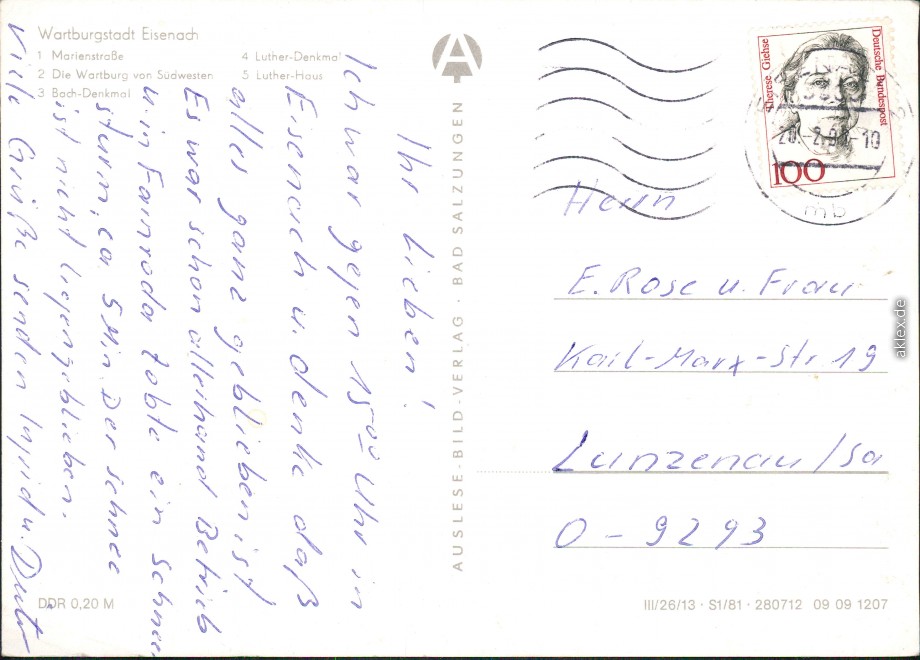 Wartburgstadt Eisenach
1 Marienstraße
2 Die Wartburg von Südwesten
3 Bach-Denkmal
4 Luther-Denkmal
5 Luther-Haus
Ihr Lieben!
Ich war gegen 15⁰⁰ Uhr in
Eisenach u. denke daß
alles ganz geblieben ist
Es war schon allerhand Betrieb
u. in Fanroda tobte ein Schnee
sturm, ca 5 Min. Der Schnee
ist nicht liegengeblieben.
Viele Grüße senden u.
DDR 0,20 M
AUSLESE-BILD-VERLAG · BAD SALZUNGEN
Therese Giehse
Deutsche Bundespost
100
-10
mb
Herrn
E. Rose u. Frau
Karl-Marx-Str 19
Lunzenau/Sa
O-9293
III/26/13 · S1/81 · 280712 09 09 1207
aklex.de